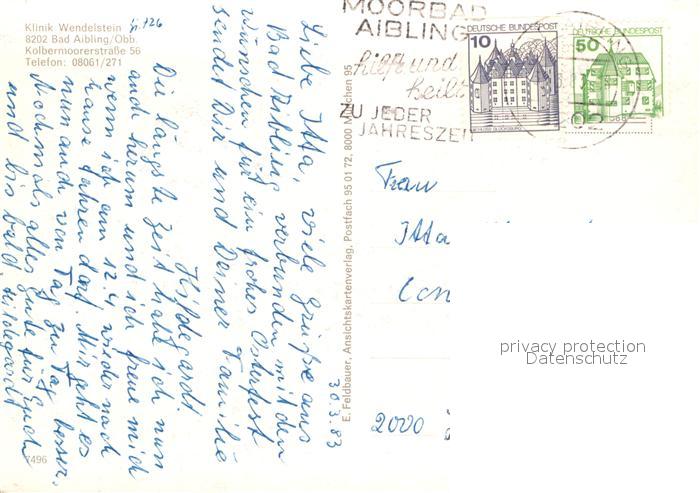 Klinik Wendelstein
8202 Bad Aibling/Obb.
Kolbermoorerstraße 56
Telefon: 08061/271
MOORBAD
AIBLING
hilft und
heilt
ZU JEDER
JAHRESZEIT
DEUTSCHE BUNDESPOST
10
SCHLOSS GLÜCKSBURG
DEUTSCHE BUNDESPOST
50
30.3.83
Liebe Itta, viele Grüße aus
Bad Aibling verbunden mit den
Wünschen für ein frohes Osterfest
sendet Dir und Deiner Familie
Hildegardt
Die längste Zeit habe ich nun
auch herum und ich freue mich
wenn ich am 12.4 wieder nach
hause fahren darf. Mir geht es
nun auch von Tag zu Tag besser.
Nochmals alles Gute für Euch
und bis bald Hildegardt
E. Feldbauer, Ansichtskartenverlag, Postfach 95 01 72, 8000 München 95
Frau
Itta
2000
privacy protection
Datenschutz
7496